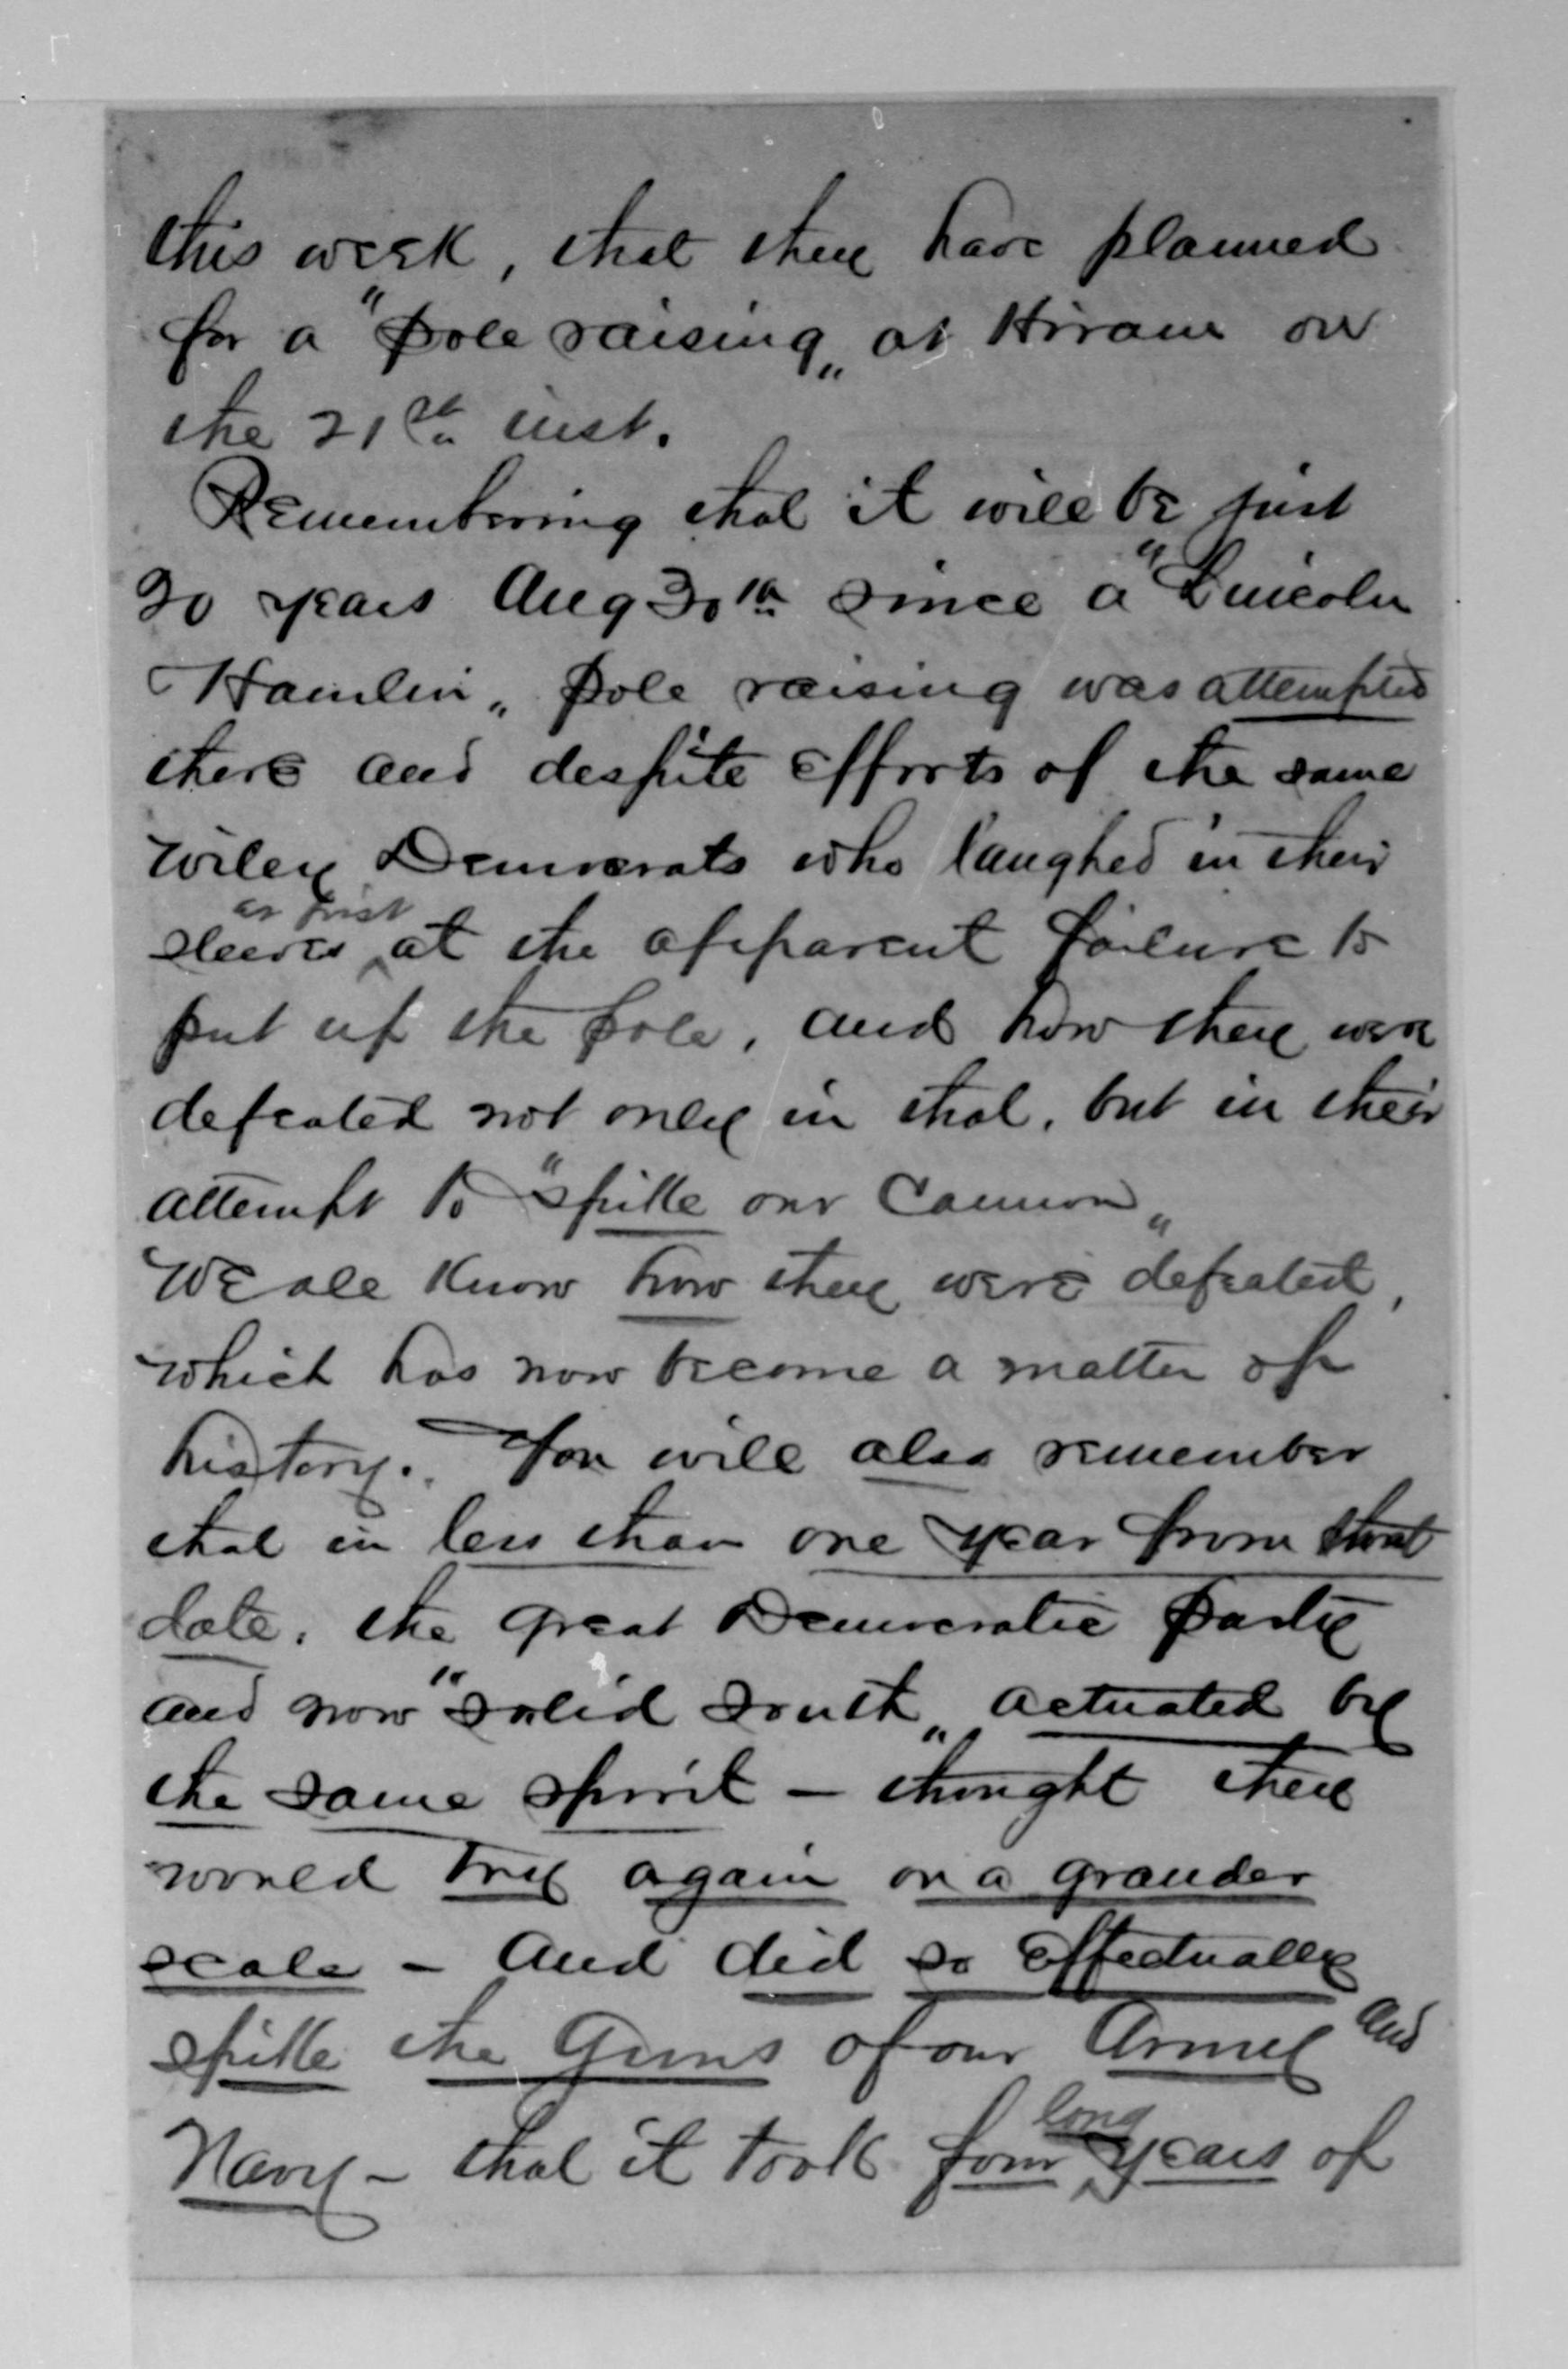 this week, that they have planned
for a "pole raising" at Hiram on
the 21st inst.
Remembering that it will be just
20 years Aug 30th since a "Lincoln
Hamlin" pole raising was attempted
there and despite efforts of the same
wiley Democrats who laughed in their
sleeves at first at the apparent failure to
put up the pole, and how they were
defeated not only in that, but in their
attempt to "spike our Cannon"
We all know how they were defeated,
which has now become a matter of
history. You will also remember
that in less than one year from that
date, the great Democratic party
and now "solid south" actuated by
the same spirit - thought they
would try again on a grander
scale - and did so effectually
spike the Guns of our Army and
Navy - that it took four long years of